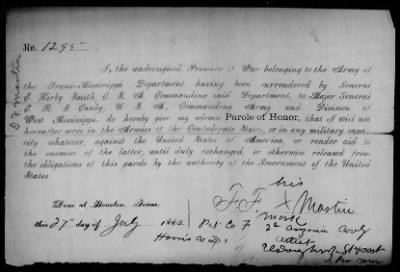 No. 1295
I, the undersigned, Prisoner of War belonging to the Army of
the Trans-Mississippi Department having been surrendered by General
E. Kirby Smith, C. S. A. Commanding said Department, to Major General
E. R. S. Canby, U. S. A. Commanding Army and Division of
West Mississippi do hereby give my solemn Parole of Honor, that I will not
hereafter serve in the Armies of the Confederate States, or in any military capa-
city whatever, against the United States of America, or render aid to
the enemies of the latter, until duly exchanged, or otherwise released from
the obligations of this parole by the authority of the Government of the United
States.
his
F. F. X Martin
mark
Done at Houston, Texas.
this 27th day of July 1865.
Pvt Co F
2d Arizona Cavly
Harris Co
F F Martin